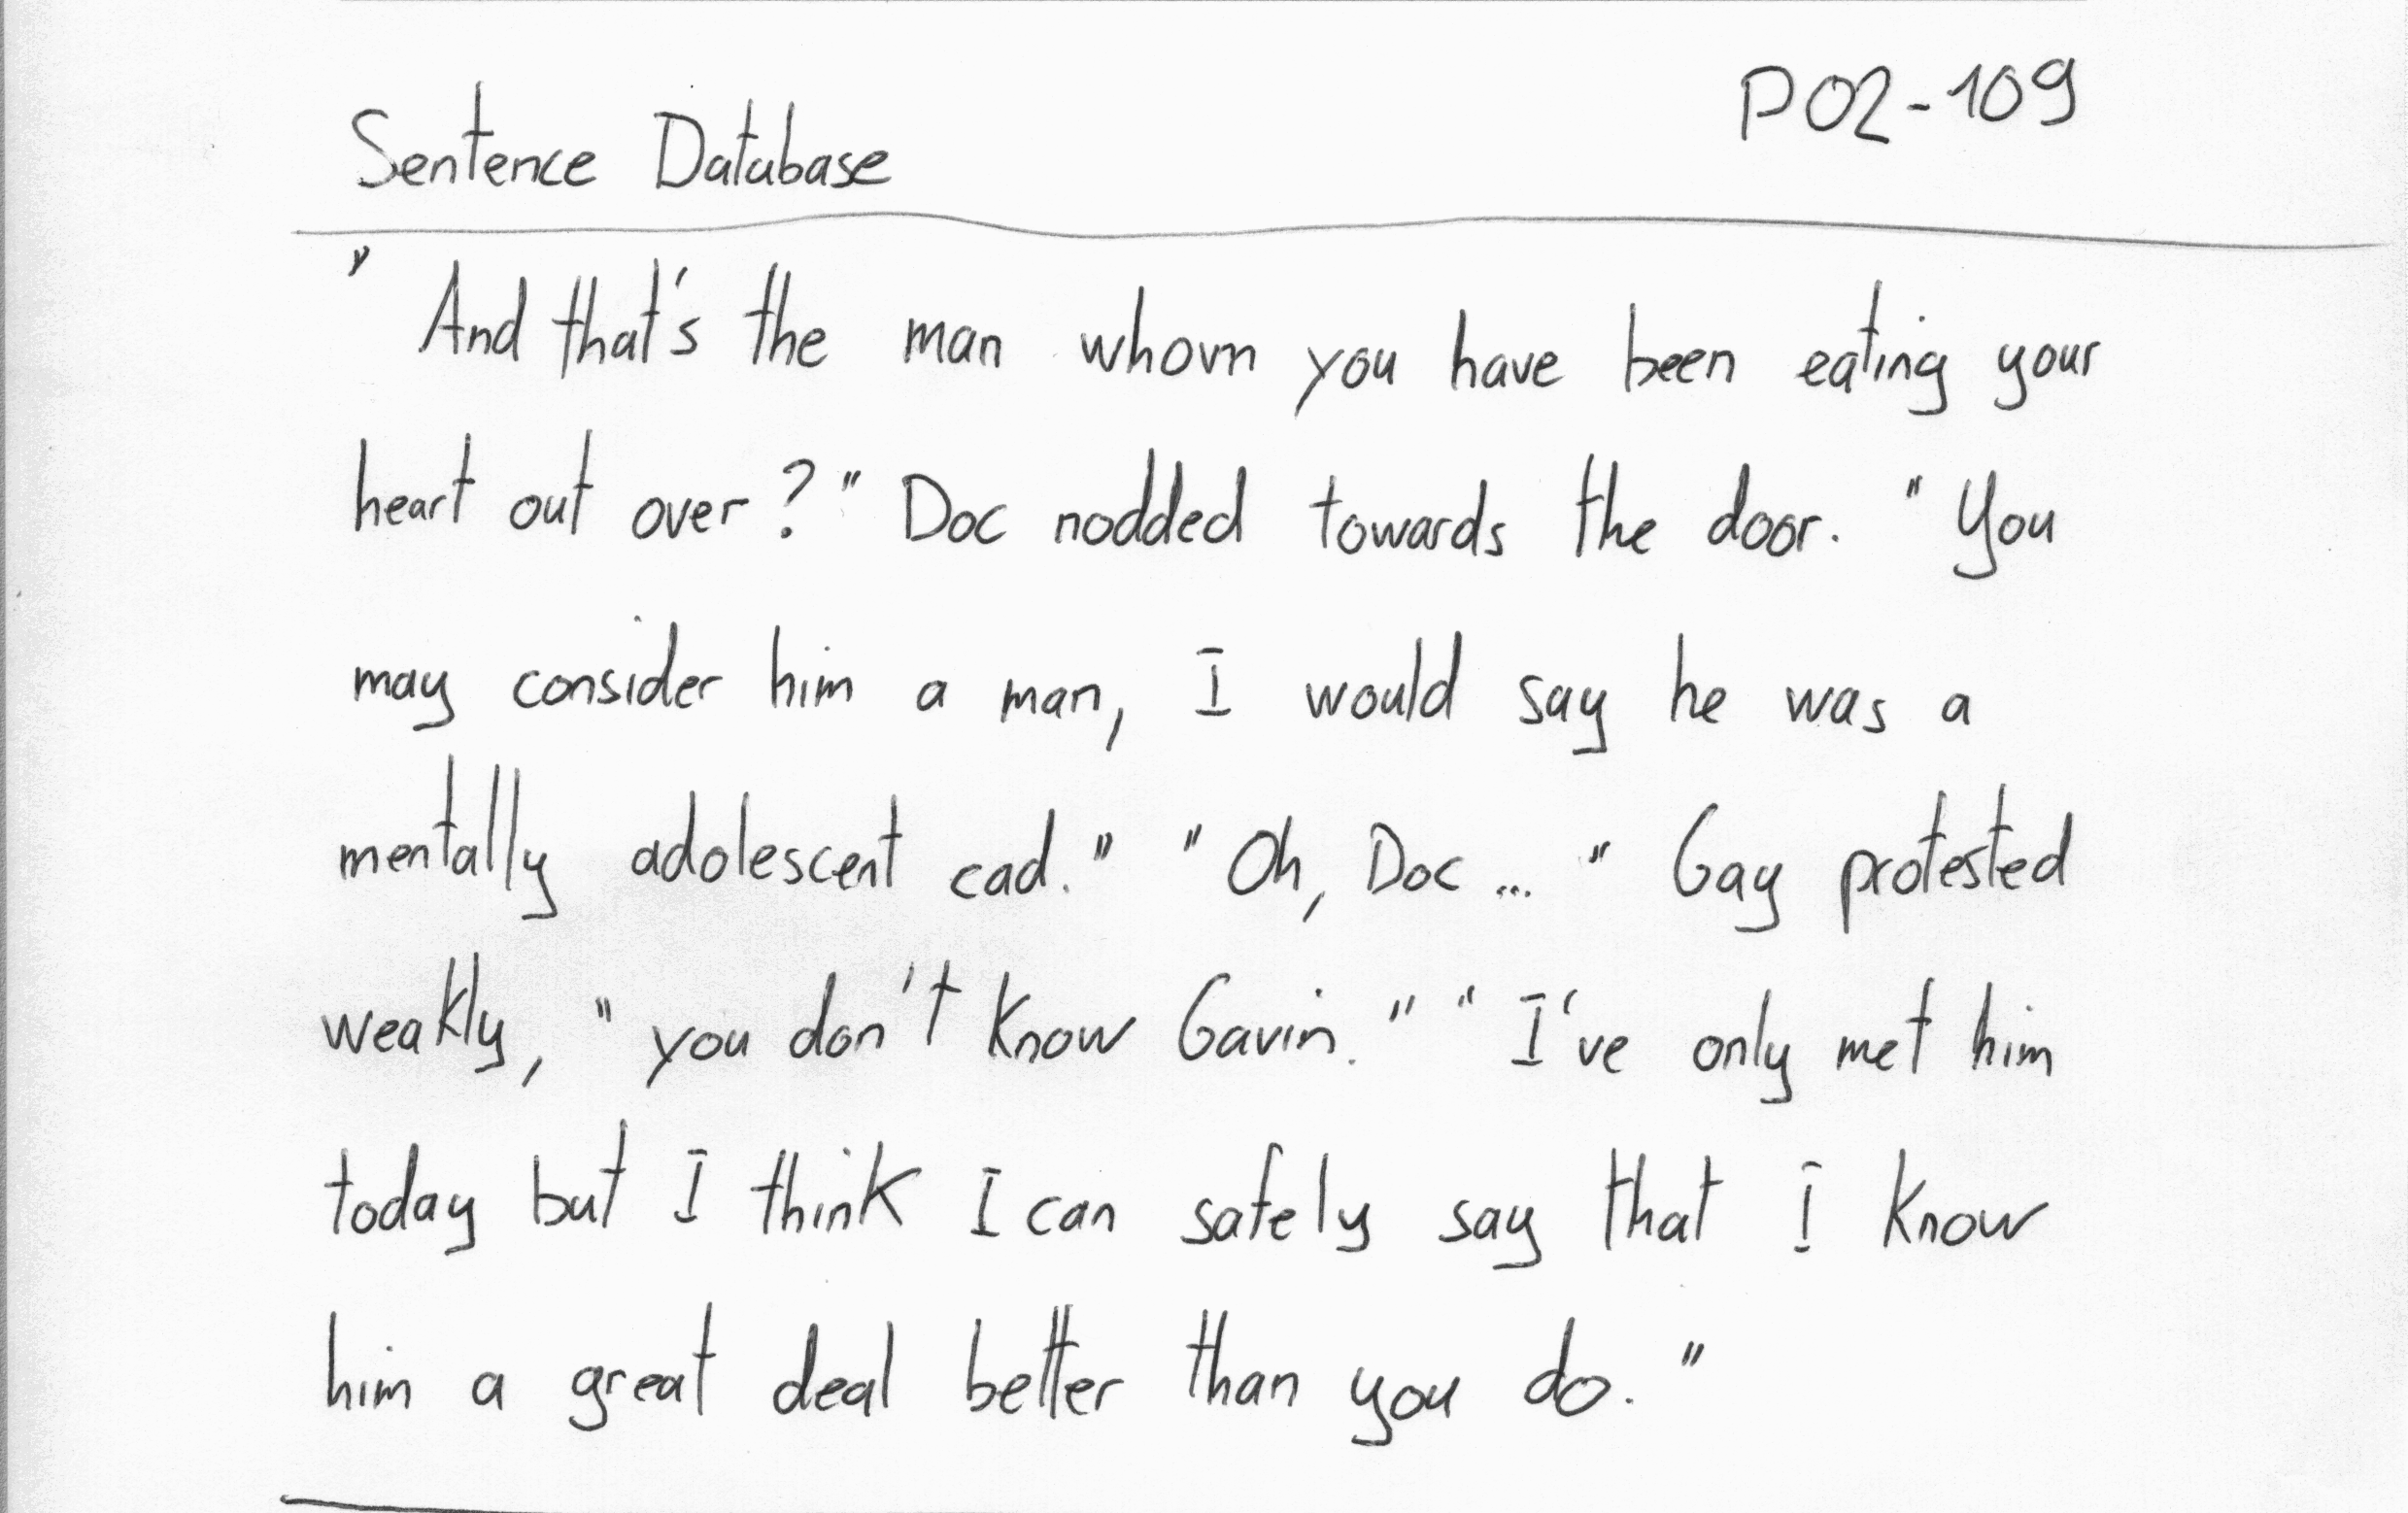 Sentence Database P02-109
"And that's the man whom you have been eating your
heart out over?" Doc nodded towards the door. "You
may consider him a man, I would say he was a
mentally adolescent cad." "Oh, Doc ..." Gay protested
weakly, "you don't know Gavin." "I've only met him
today but I think I can safely say that I know
him a great deal better than you do."